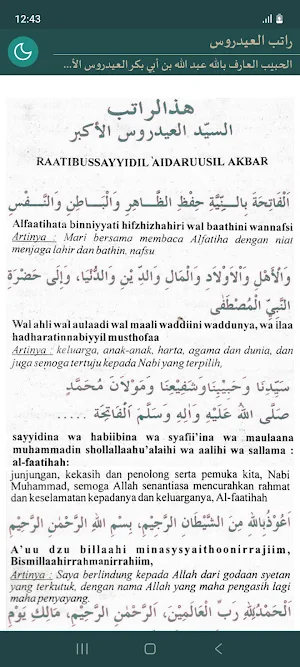 12:43
راتب العيدروس
الحبيب العارف بالله عبد الله بن أبي بكر العيدروس الأ...
هذالراتب
السيّد العيدروس الأكبر
RAATIBUSSAYYIDIL 'AIDARUUSIL AKBAR
اَلْفَاتِحَةَ بِالنِّيَّةِ حِفْظِ الظَّاهِرِ وَالْبَاطِنِ وَالنَّفْسِ
Alfaatihata binniyyati hifzhizhahiri wal baathini wannafsi
Artinya : Mari bersama membaca Alfatiha dengan niat
menjaga lahir dan bathin. nafsu
وَالْأَهْلِ وَالْاَوْلَادِ وَالْمَالِ وَالدِّيْنِ وَالدُّنْيَا، وَاِلَى حَضْرَةِ
النَّبِيِّ الْمُصْطَفَى
Wal ahli wal aulaadi wal maali waddiini waddunya, wa ilaa
hadharatinnabiyyil musthofaa
Artinya : keluarga, anak-anak, harta, agama dan dunia, dan
juga semoga tertuju kepada Nabi yang terpilih,
سَيِّدِنَا وَحَبِيْبِنَا وَشَفِيْعِنَا وَمَوْلَانَ مُحَمَّدٍ
صَلَّى اللهُ عَلَيْهِ وَاٰلِهِ وَسَلَّمَ اَلْفَاتِحَةْ .....
sayyidina wa habiibina wa syafii'ina wa maulaana
muhammadin shollallaahu'alaihi wa aalihi wa sallama :
al-faatihah:
junjungan, kekasih dan penolong serta pemuka kita, Nabi
Muhammad, semoga Allah senantiasa mencurahkan rahmat
dan keselamatan kepadanya dan keluarganya, Al-faatihah
اَعُوْذُبِاللهِ مِنَ الشَّيْطَانِ الرَّجِيْمِ، بِسْمِ اللهِ الرَّحْمٰنِ الرَّحِيْمِ
A'uu dzu billaahi minasysyaithoonirrajiim,
Bismillaahirrahmanirrahiim,
Artinya : Saya berlindung kepada Allah dari godaan syetan
yang terkutuk, dengan nama Allah yang maha pengasih lagi
maha penyayang.
اَلْحَمْدُلِلّٰهِ رَبِّ الْعَالَمِيْنَ، اَلرَّحْمٰنِ الرَّحِيْمِ، مَالِكِ يَوْمِ